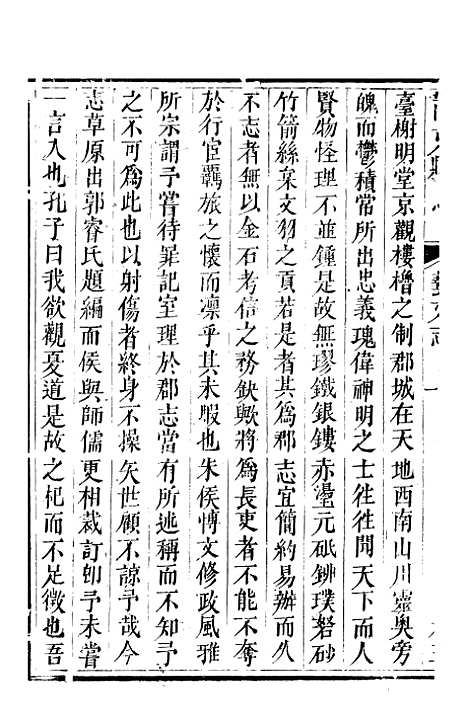 臺榭明堂京觀樓櫓之制郡城在天地西南山川靈奧旁
魄而鬱積常所出忠義瑰偉神明之士徃徃聞天下而人
賢物怪理不並鍾是故無璆鐵銀鏤赤墁元砥銋璞砮砂
竹箭絲枲文貁之貢若是者其為郡志宜簡約易辦而久
不志者無以金石考信之務缺歟將為長吏者不能不奪
於行宦羈旅之懷而凛乎其未暇也朱侯博文修政風雅
所宗謂予嘗待罪記室理於郡志當有所述稱而不知予
之不可為此也以射傷者終身不操矢世顧不諒予哉今
志草原出郭睿氏題編而侯與師儒更相裁訂卽予未嘗
一言入也孔子曰我欲觀夏道是故之杞而不足徵也吾
藝文志